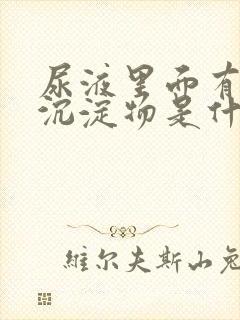 尿液里面有
沉淀物是什
維尔夫斯山兔